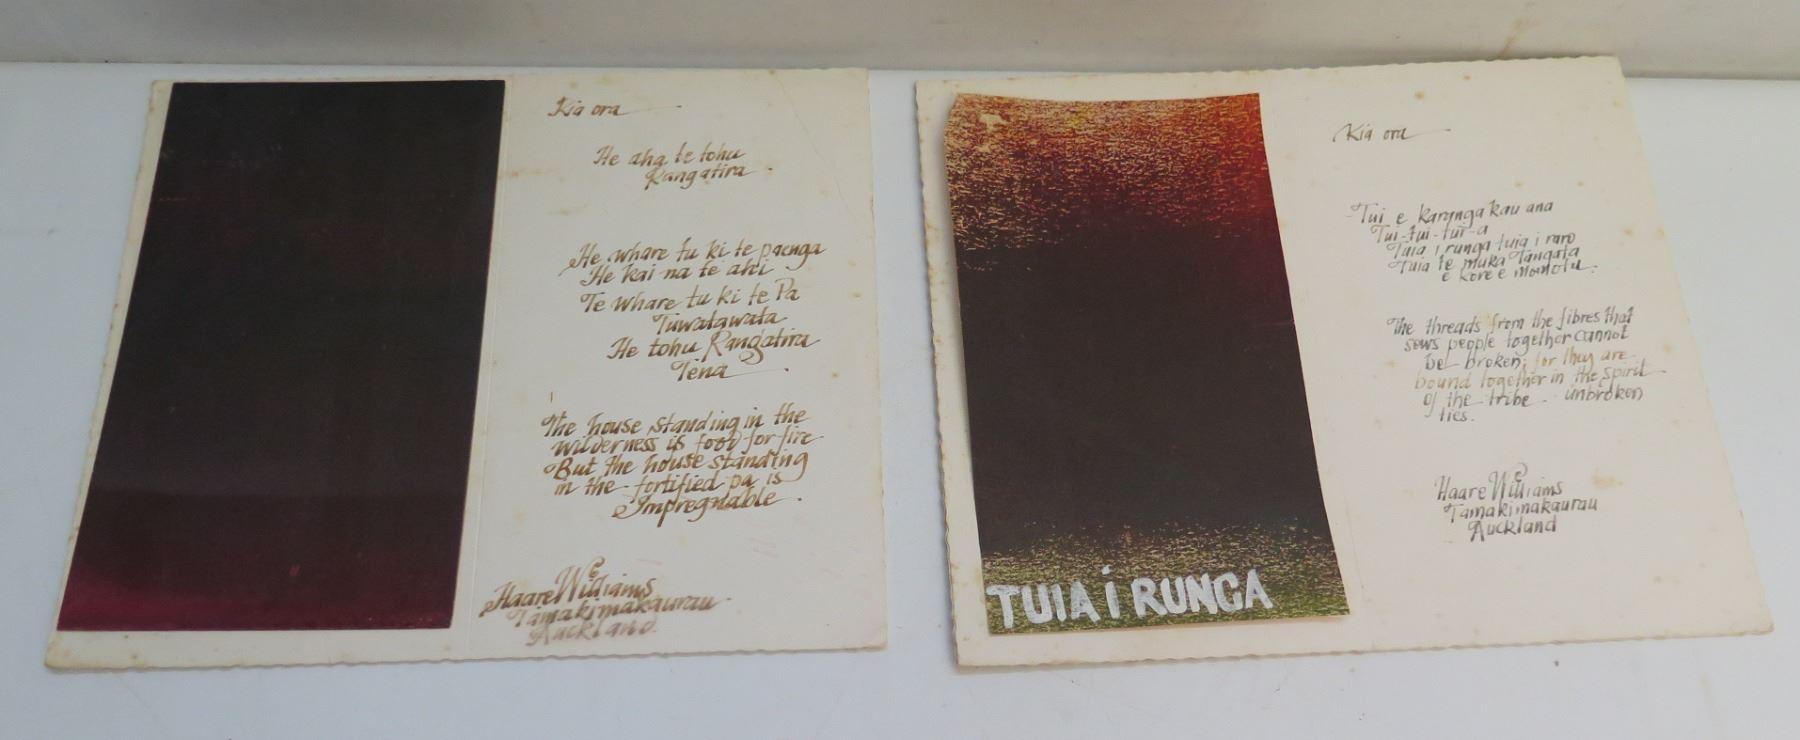 Kia ora
He aha te tohu
Rangatira
He whare tu ki te paenga
He kai na te ahi
Te whare tu ki te Pa
Tuwatawata
He tohu Rangatira
Tena
The house standing in the
wilderness is food for fire
But the house standing
in the fortified pa is
Impregnable.
Haare Williams
Tamakimakaurau
Auckland
TUIA i RUNGA
Kia ora
Tui e karanga kau ana
Tui-tui-tui-a
Tuia i runga tuia i raro
tuia te muka tangata
e kore e momotu.
The threads from the fibres that
sews people together cannot
be broken; for they are
bound together in the spirit
of the tribe - unbroken
ties.
Haare Williams
Tamakimakaurau
Auckland